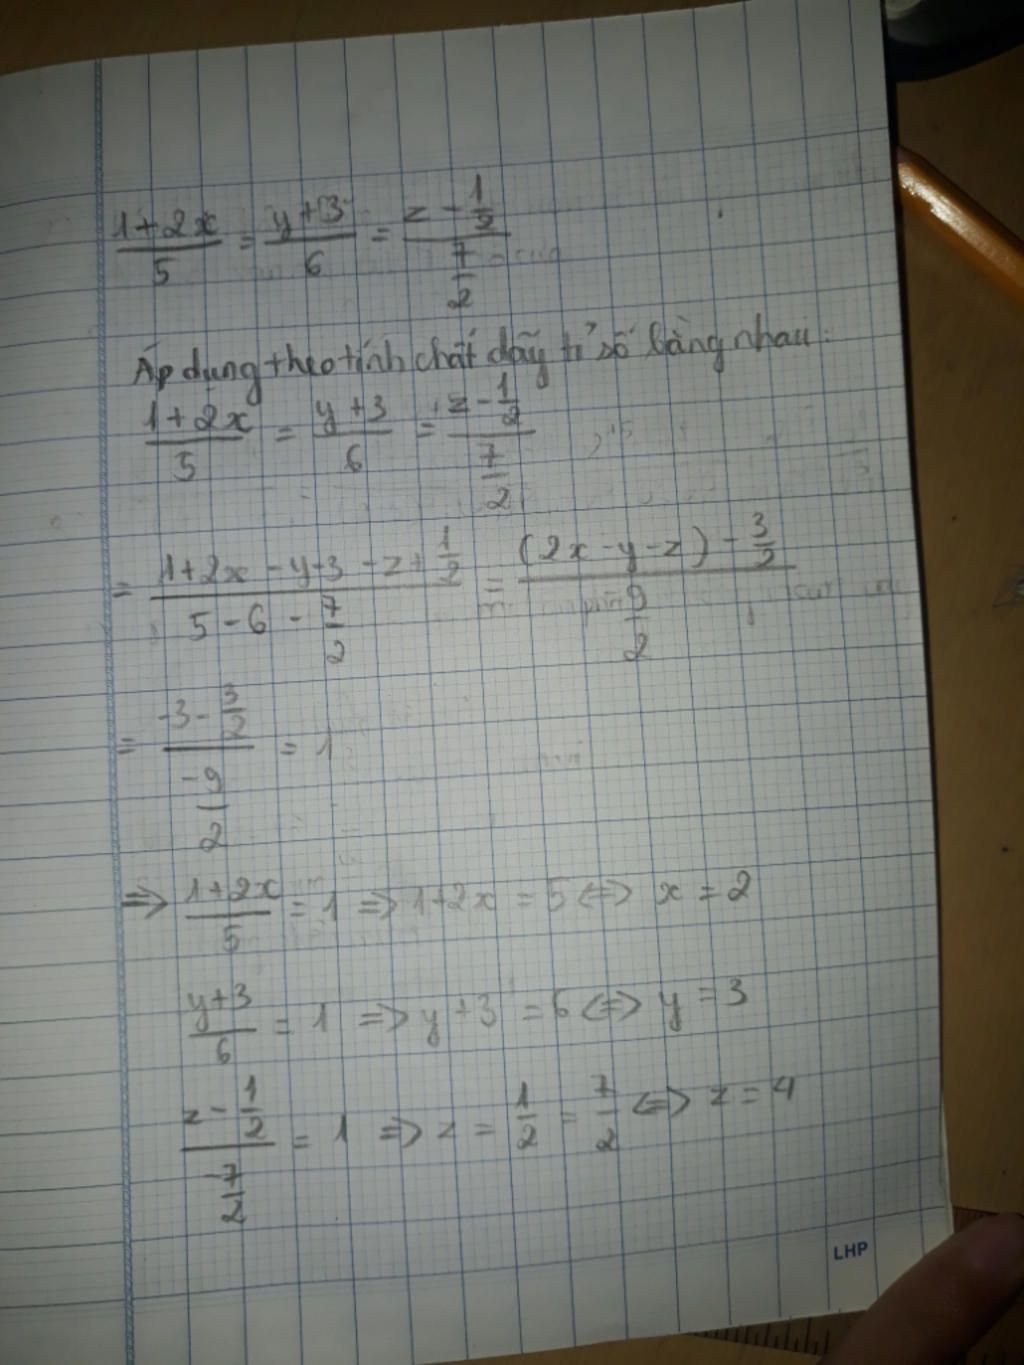 (1+2x)/5 = (y+3)/6 = (z - 1/2)/(7/2)
Áp dụng theo tính chất dãy tỉ số bằng nhau:
(1+2x)/5 = (y+3)/6 = (z - 1/2)/(7/2)
= (1+2x-y-3-z+1/2)/(5-6-7/2) = ((2x-y-z) - 3/2)/(9/2)
= (-3 - 3/2)/(-9/2) = 1
=> (1+2x)/5 = 1 => 1+2x = 5 <=> x = 2
(y+3)/6 = 1 => y+3 = 6 <=> y = 3
(z - 1/2)/(7/2) = 1 => z = 1/2 = 7/2 <=> z = 4
LHP